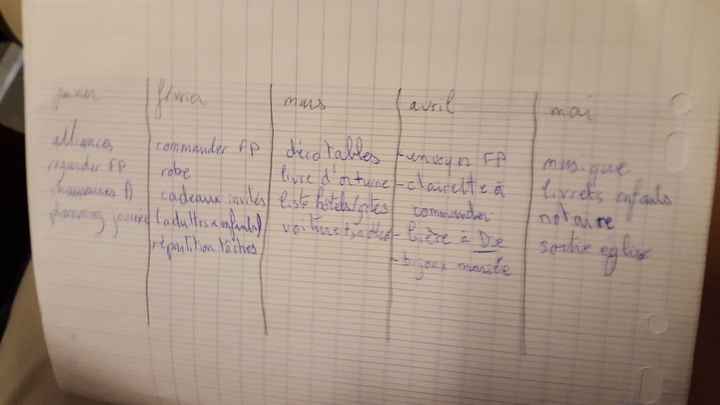 janvier
alliances
regarder FP
chaussures A
planning journée
février
commander FP
robe
cadeaux invités
(adultes + enfants)
répartition tâches
mars
déco tables
livre d'or
liste hôtels/gîtes
avril
- envoyer FP
- clairette à
commander
- bière à Die
- bijoux mariée
mai
musique
livrets enfants
notaire
sortie église